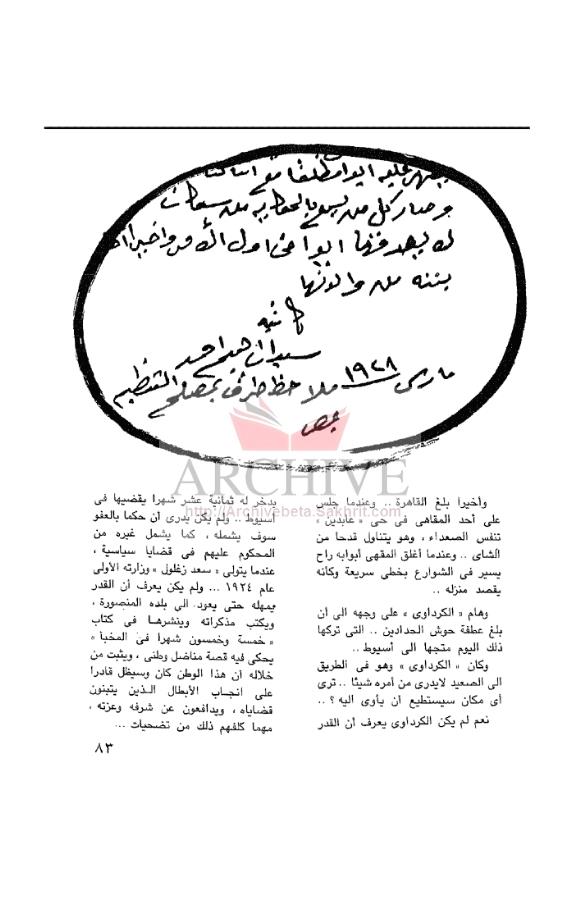 وصار كل من يسمع بالحكايه من سكان
بنته من والدتها
كاتبه
مارس ١٩٢٨ ملاحظ طرق بمصلحة التنظيم
بمصر
ARCHIVE
http://Archivebeta.Sakhrit.com
وأخيرا بلغ القاهرة .. وعندما جلس
على أحد المقاهى فى حى « عابدين »
تنفس الصعداء ، وهو يتناول قدحا من
الشاى .. وعندما أغلق المقهى أبوابه راح
يسير فى الشوارع بخطى سريعة وكأنه
يقصد منزله ..
وهام « الكرداوى » على وجهه الى أن
بلغ عطفة حوش الحدادين .. التى تركها
ذلك اليوم متجها الى أسيوط ..
وكان « الكرداوى » وهو فى الطريق
الى الصعيد لايدرى من أمره شيئا .. ترى
أى مكان سيستطيع أن يأوى اليه ؟ ..
نعم لم يكن الكرداوى يعرف أن القدر
يدخر له ثمانية عشر شهرا يقضيها فى
أسيوط .. ولم يكن يدرى أن حكما بالعفو
سوف يشمله ، كما يشمل غيره من
المحكوم عليهم فى قضايا سياسية ،
عندما يتولى « سعد زغلول » وزارته الأولى
عام ١٩٢٤ ... ولم يكن يعرف أن القدر
يمهله حتى يعود الى بلده المنصورة ،
ويكتب مذكراته وينشرها فى كتاب
« خمسة وخمسون شهرا فى المخبأ »
يحكى فيه قصة مناضل وطنى ، ويثبت من
خلاله أن هذا الوطن كان وسيظل قادرا
على انجاب الأبطال الذين يتبنون
قضاياه ، ويدافعون عن شرفه وعزته ،
مهما كلفهم ذلك من تضحيات ...
٨٣